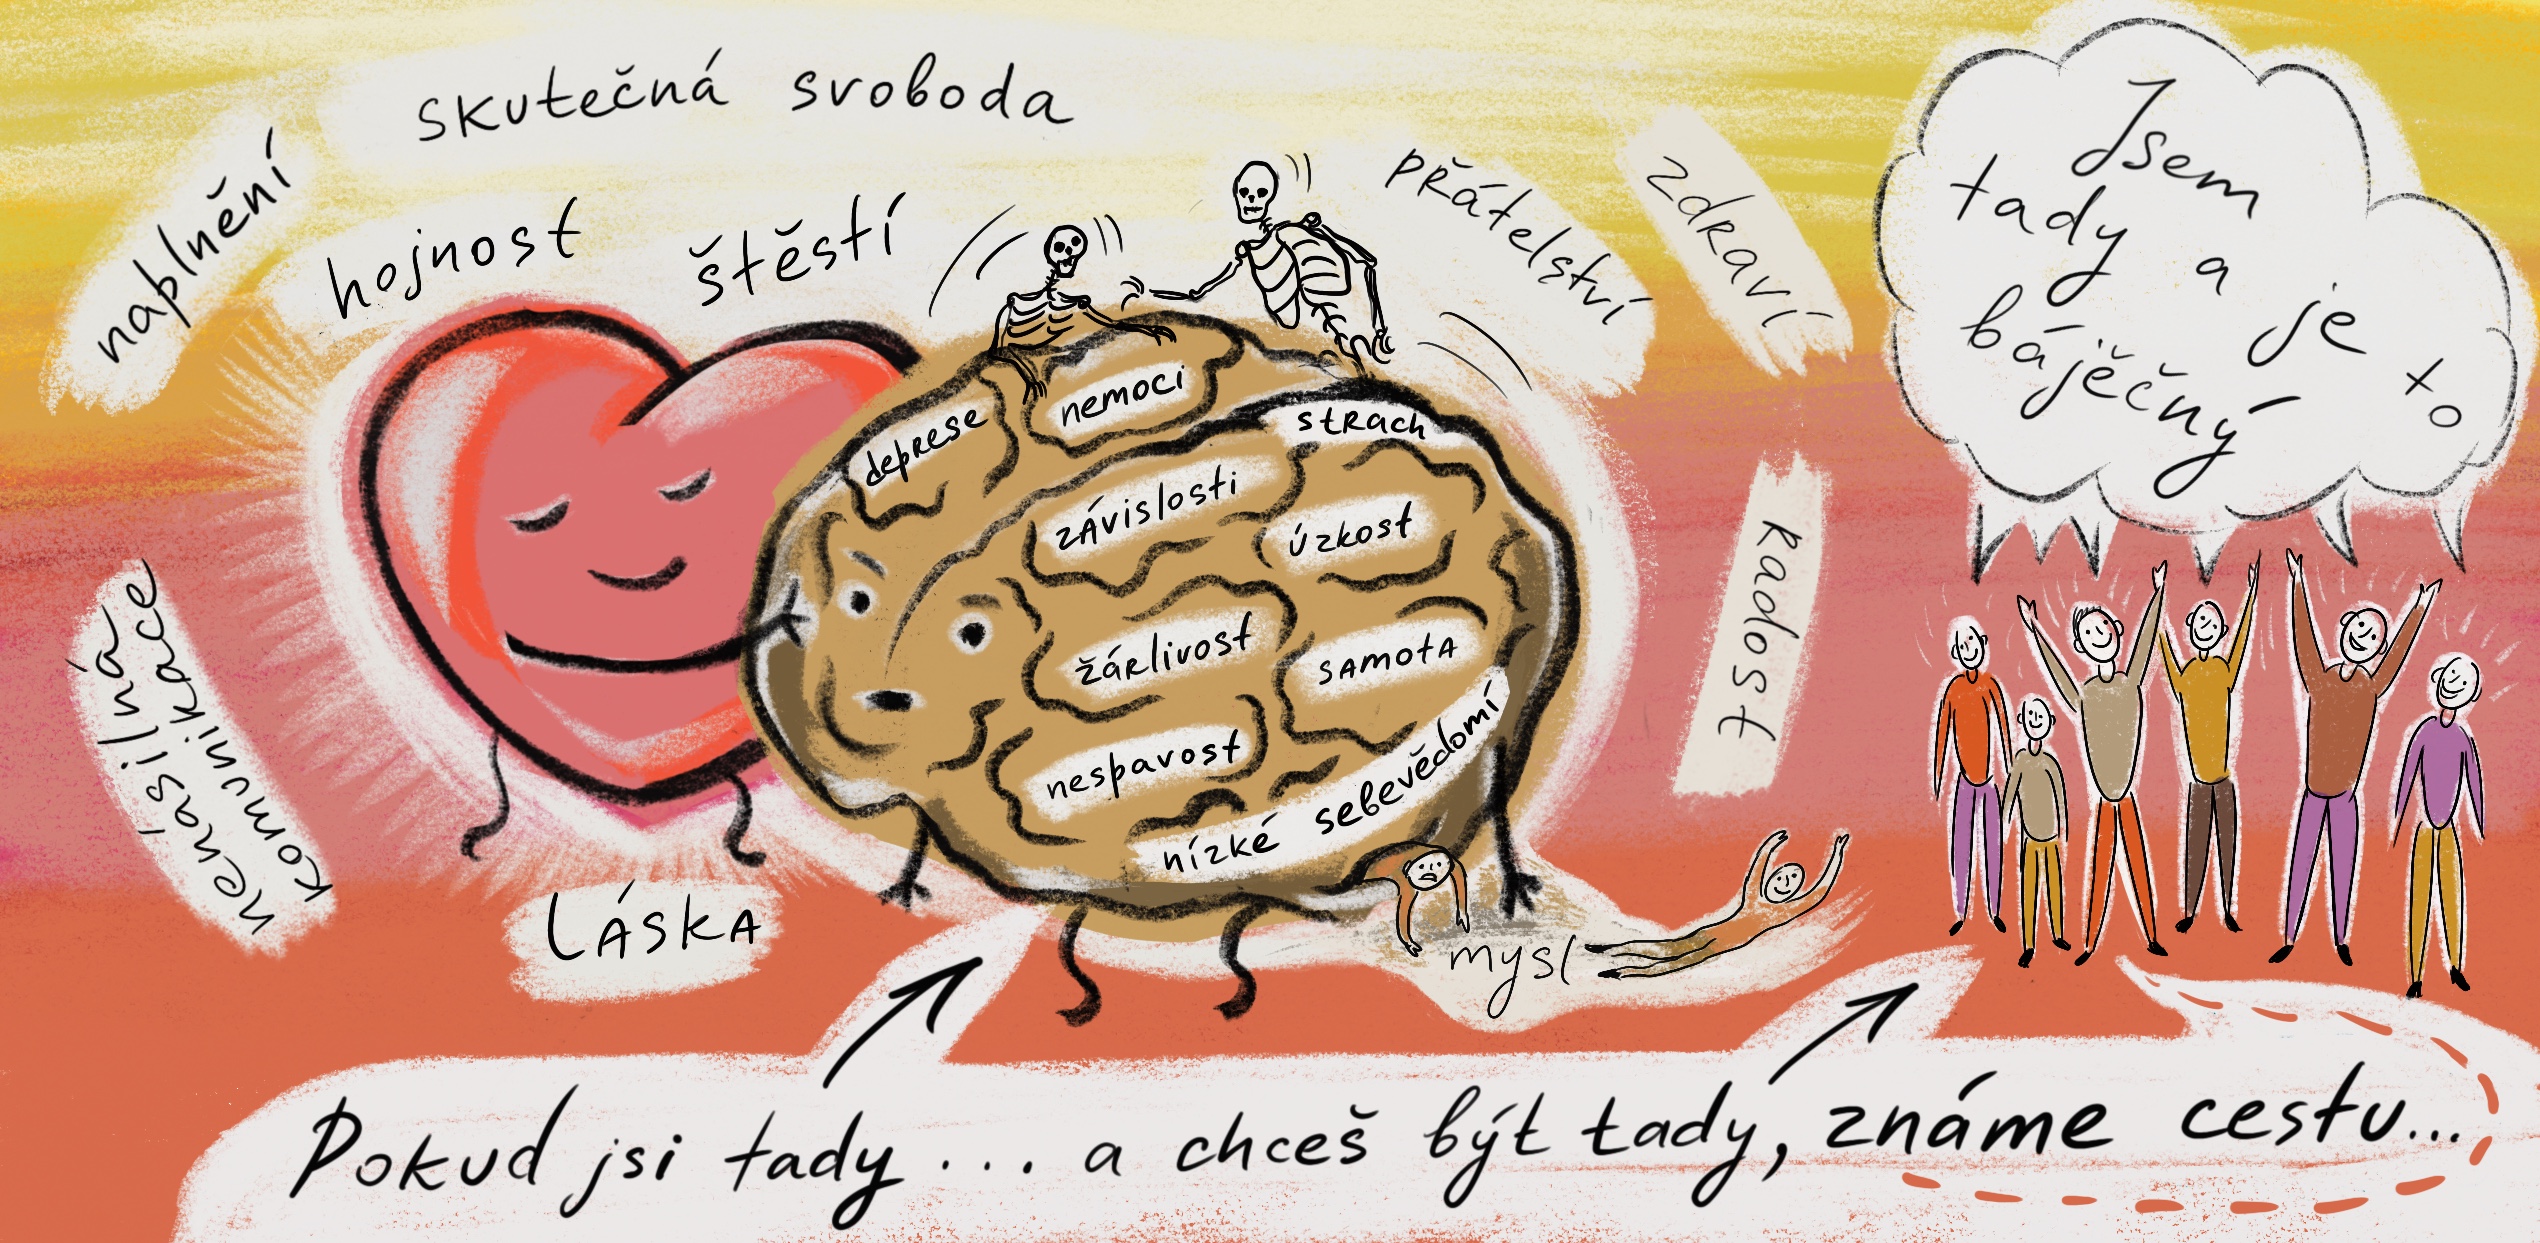 skutečná svoboda
naplnění
hojnost
štěstí
přátelství
zdraví
Jsem
tady a je to
báječný
deprese
nemoci
strach
závislosti
úzkost
žárlivost
samota
nespavost
nízké sebevědomí
radost
nenásilná
komunikace
LÁSKA
mysl
Pokud jsi tady... a chceš být tady, známe cestu...